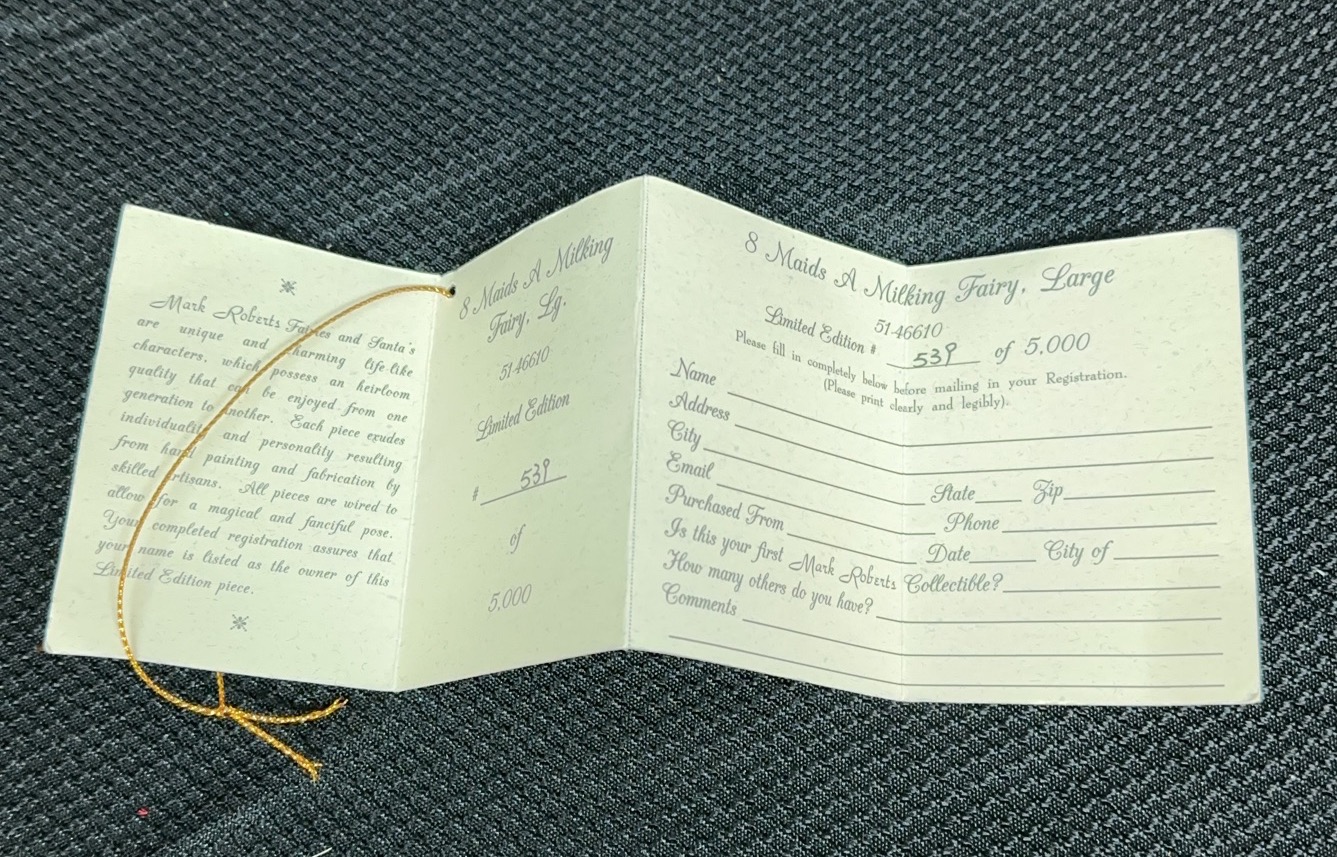 Mark Roberts Fairies and Santa's
are unique and charming life-like
characters, which possess an heirloom
quality that can be enjoyed from one
generation to another. Each piece exudes
individuality and personality resulting
from hand painting and fabrication by
skilled artisans. All pieces are wired to
allow for a magical and fanciful pose.
Your completed registration assures that
your name is listed as the owner of this
Limited Edition piece.
8 Maids A Milking
Fairy, Lg.
51-46610
Limited Edition
# 539
of
5,000
8 Maids A Milking Fairy, Large
51-46610
Limited Edition # 539 of 5,000
Please fill in completely below before mailing in your Registration.
(Please print clearly and legibly).
Name
Address
City State Zip
Email Phone
Purchased From Date City of
Is this your first Mark Roberts Collectible?
How many others do you have?
Comments